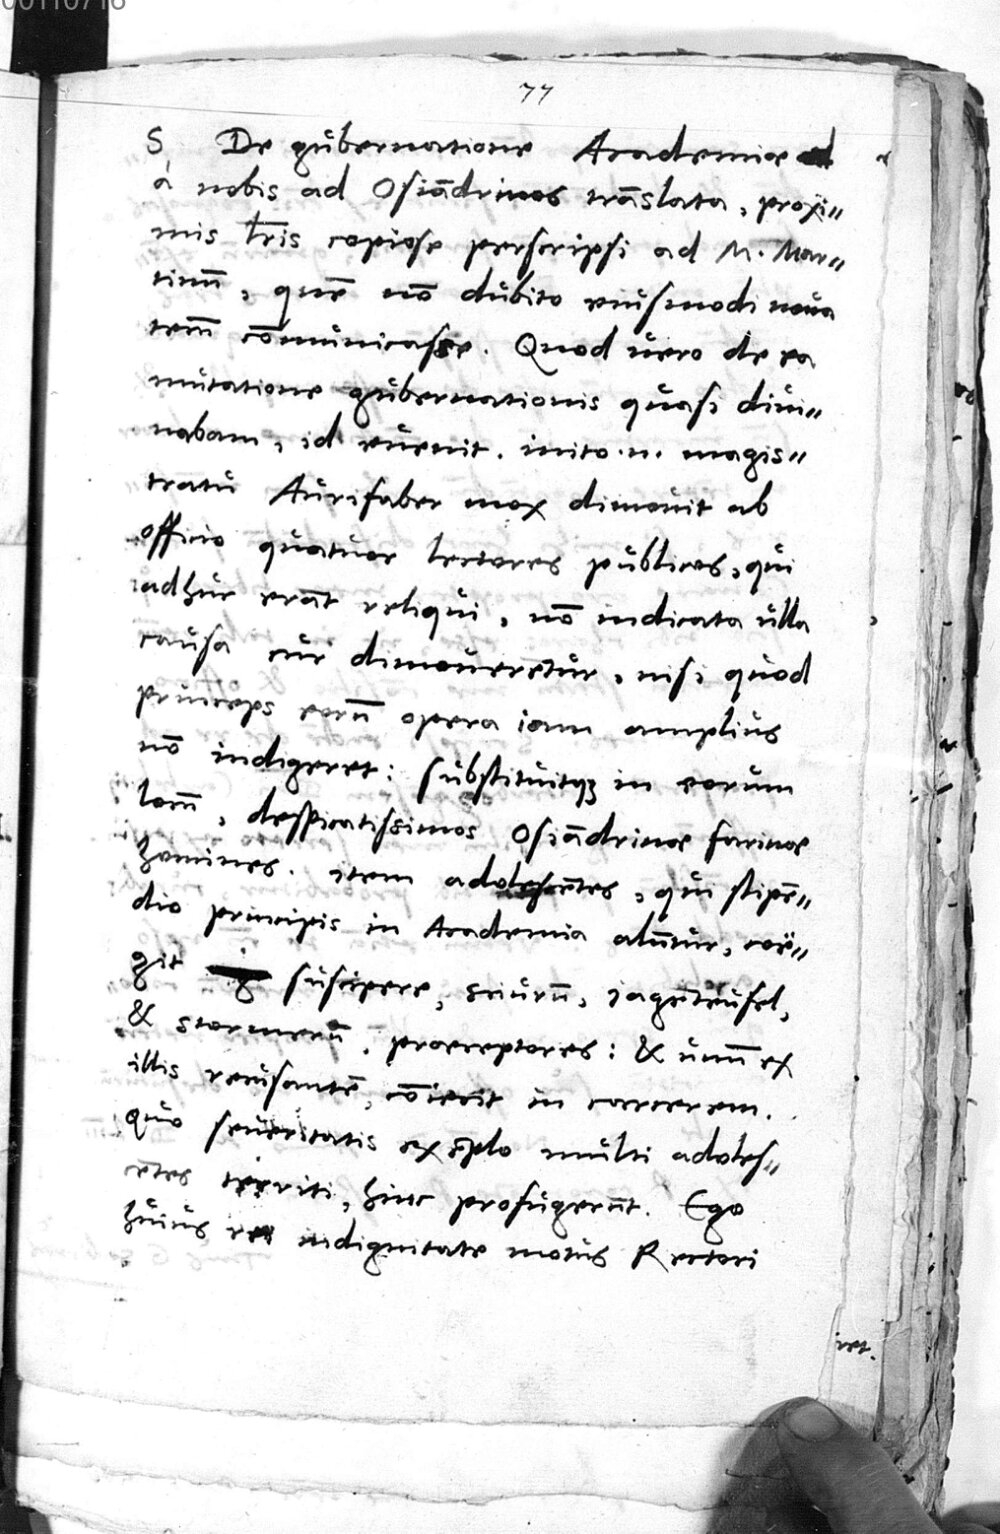 00110716
77
S De gubernatione Academiae
à nobis ad Osiādrinos trāslata, proxi„
mis lr̃is copiose perscripsi ad M. Mar„
tinū, quē nō dubito eiusmodi noua
tecū cōmunicasse. Quod uero de ea
mutatione gubernationis quasi diui„
nabam, id euenit. inito .n. magis„
tratu Aurifaber mox dimouit ab
officio quatuor lectores publicos, qui
adhuc erāt reliqui, nō indicata ulla
causa cur dimoueretur, nisi quod
princeps eorū opera iam amplius
nō indigeret: substituitq; in eorum
locū, despicatissimos Osiādrinae farinae
homines. item adolescētes, qui stipē„
dio principis in Academia alūtur, coë„
git suscipere, sciurū, jageteufel,
& stormerū, praeceptores: & unū ex
illis recusantē, cōiecit in carcerem.
quo seueritatis exēplo multi adoles„
cētes territi, hinc profugerūt. Ego
huius rei indignitate motus Rectori
ret.